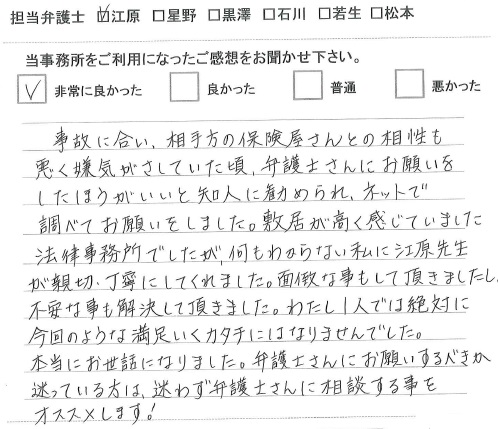 担当弁護士 ☑江原 □星野 □黒澤 □石川 □若生 □松本
当事務所をご利用になったご感想をお聞かせ下さい。
☑ 非常に良かった □ 良かった □ 普通 □ 悪かった
事故に合い、相手方の保険屋さんとの相性も
悪く嫌気がさしていた頃、弁護士さんにお願いを
したほうがいいと知人に勧められ、ネットで
調べてお願いをしました。敷居が高く感じていました
法律事務所でしたが、何もわからない私に江原先生
が親切、丁寧にしてくれました。面倒な事もして頂きましたし、
不安な事も解決して頂きました。わたし1人では絶対に
今回のような満足いくカタチにはなりませんでした。
本当にお世話になりました。弁護士さんにお願いするべきか
迷っている方は、迷わず弁護士さんに相談する事を
オススメします!